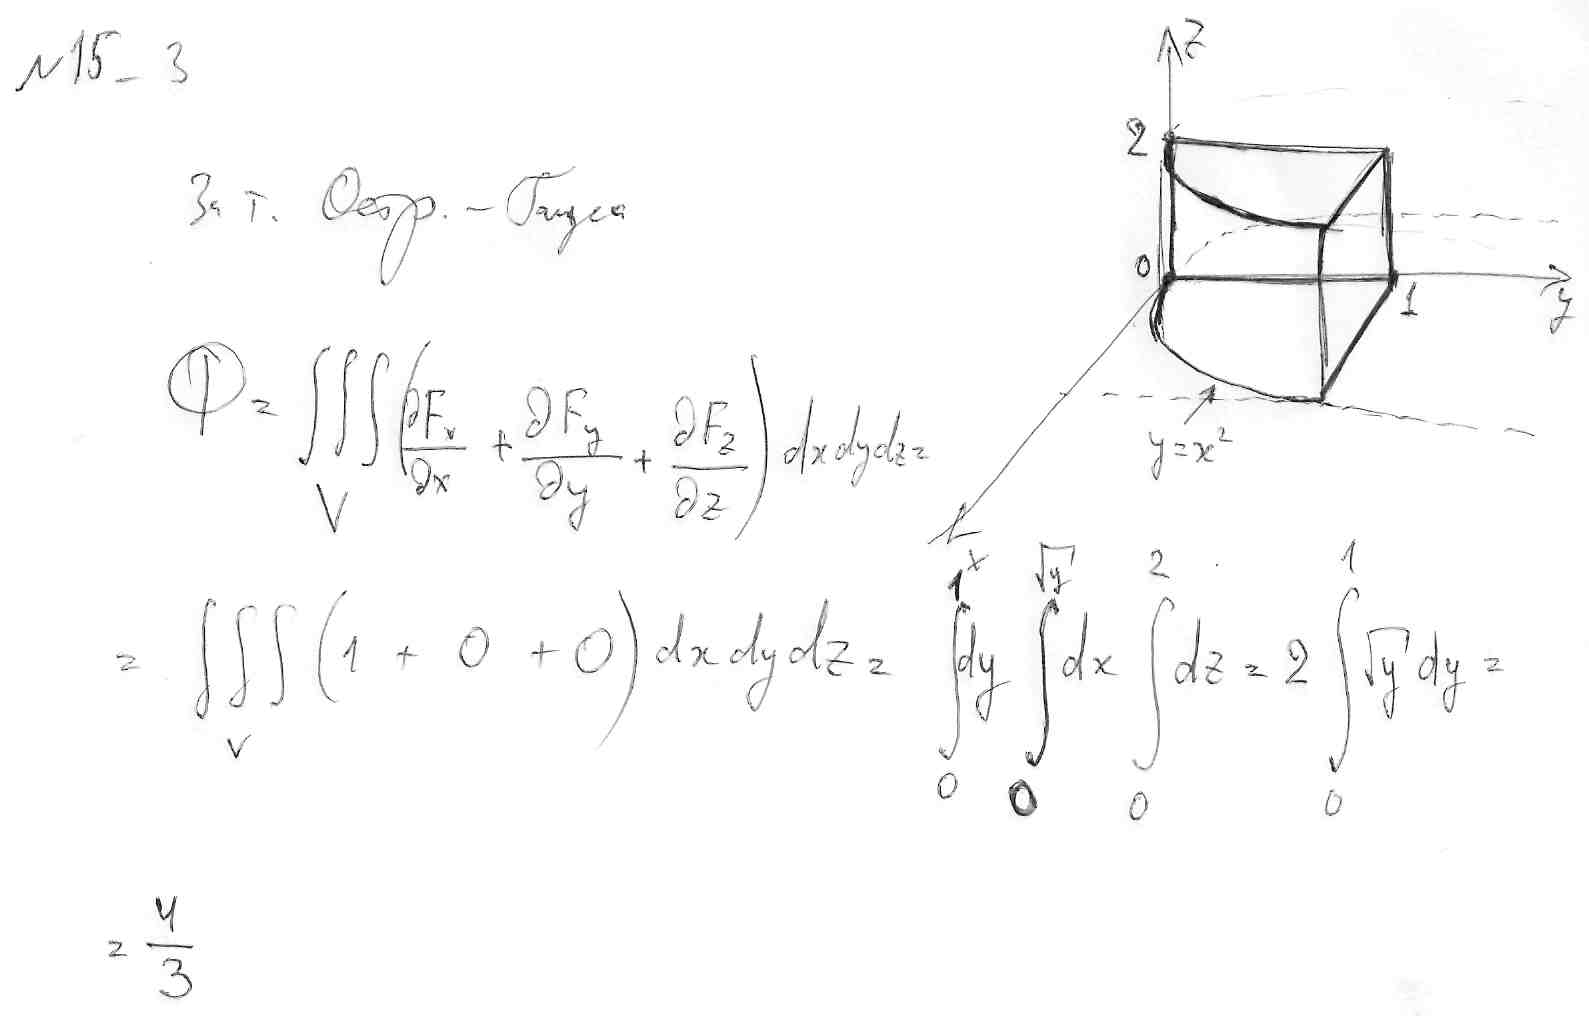 №15-3
За т. Остр. - Гаусса
Φ = ∭_V (∂F_x/∂x + ∂F_y/∂y + ∂F_z/∂z) dxdydz =
= ∭_V (1 + 0 + 0) dxdydz = ∫_0^1 dy ∫_0^{√y} dx ∫_0^2 dz = 2 ∫_0^1 √y dy =
= 4/3
z
2
0
1
y
y = x²
x